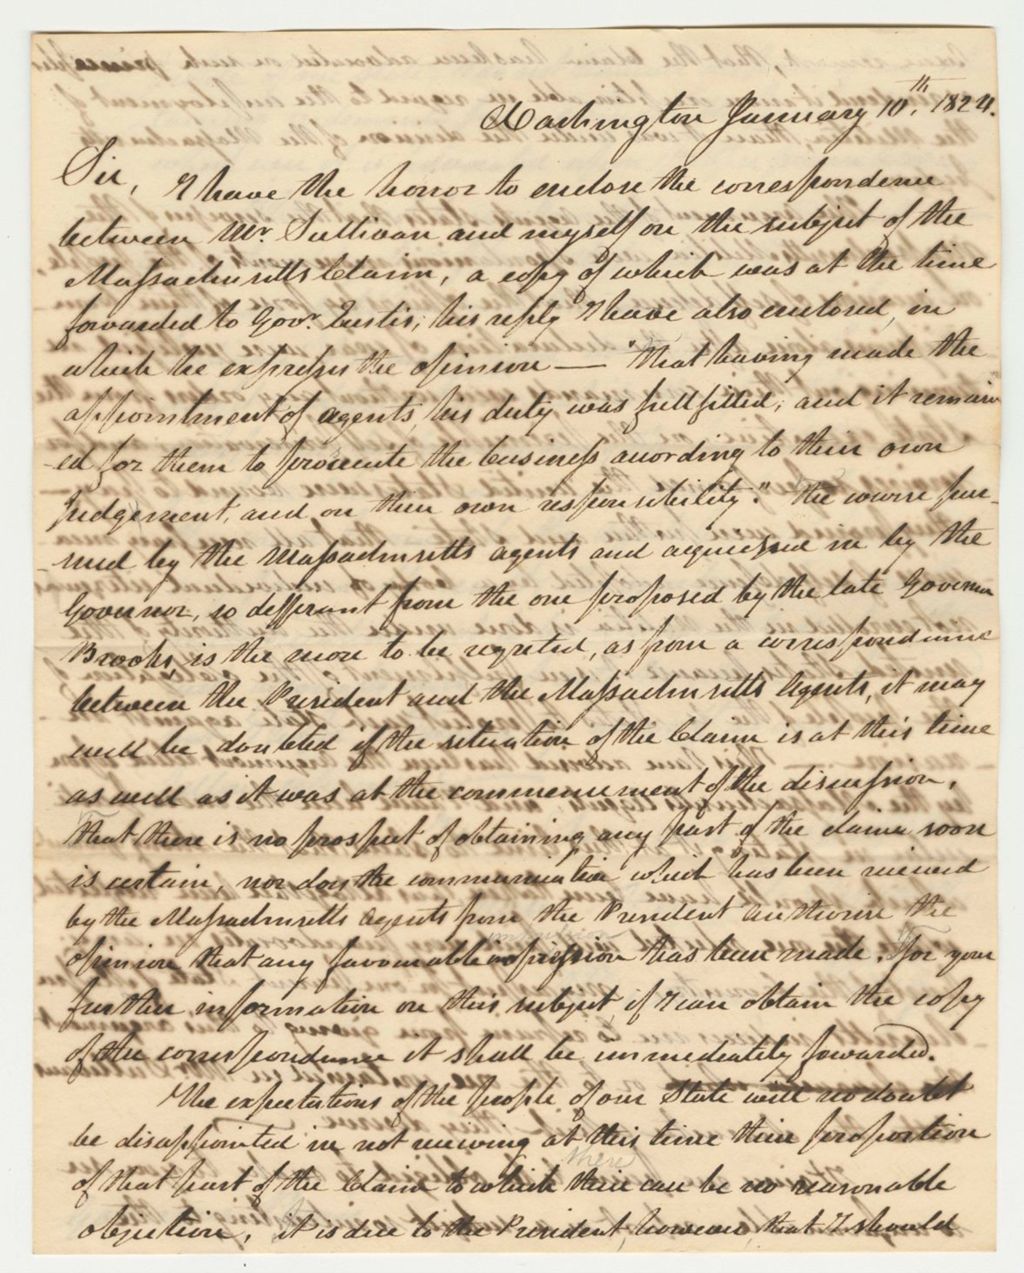 Washington January 10th, 1824.
Sir, I have the honor to enclose the correspondence
between Mr. Sullivan and myself on the subject of the
Massachusetts Claim, a copy of which was at the time
forwarded to Govr. Eustis; his reply I have also enclosed, in
which he expresses the opinion — "that having made the
appointment of agents, his duty was fullfilled; and it remain
-ed for them to prosecute the business according to their own
Judgement, and on their own responsibility." The course pur-
-sued by the Massachusetts agents and acquiesced in by the
Governor, so differant from the one proposed by the late Governor
Brooks, is the more to be regreted, as from a correspondence
between the President and the Massachusetts Agents, it may
well be doubted if the situation of the Claim is at this time
as well as it was at the commencement of the discussion,
that there is no prospect of obtaining any part of the claim soon
is certain, nor does the communication which has been received
by the Massachusetts agents from the President authorise the
opinion that any favourable impression has been made. For your
further information on this subject, if I can obtain the copy
of the correspondence it shall be immediately forwarded.
The expectations of the people of our State will no doubt
be disappointed in not receiving at this time their proportion
there
of that part of the Claim to which there can be no reasonable
objection, it is due to the President, however, that I should